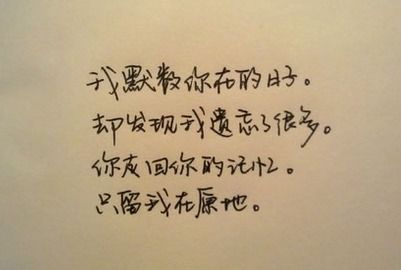 我默数你在的日子。
却发现我遗忘了很多。
你灰回你的记忆。
只留我在原地。